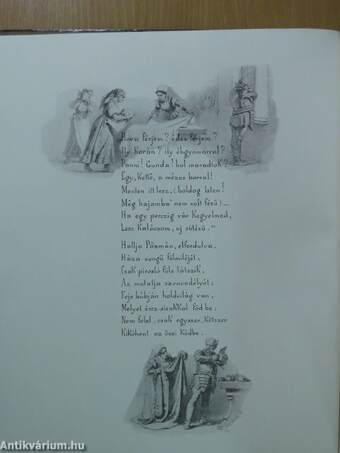 Hova férjem? édes férjem?
Ily korán? ily éhgyomorral?
Panni! Gunda! hol maradtok?
Egy, kettő, a mézes borral!
Menten itt lesz, (boldog Isten!
Még hajamba' nem volt fésű) —
Ha egy perczig vár Kegyelmed,
Lesz kalácsom, uj sütésű."
Hallja Pázmán, elfordulva,
Háza csengő fülműjét:
Csak piczuló füle látszik,
Az mutatja szenvedélyét;
Feje búbján holdvilág van,
Melyet érez-sisakkal föd be;
Nem felel, csak egyszer, kétszer
Kiköhent az őszi ködbe.
Antikvárium.hu
Antikvárium.hu